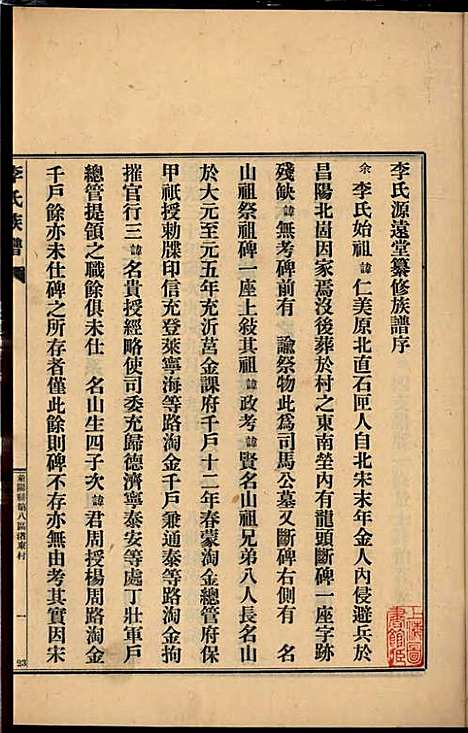 李氏源遠堂纂修族譜序
余 李氏始祖 諱 仁美原北直石匣人自北宋末年金人內侵避兵於
昌陽北崮因家焉沒後葬於村之東南塋內有龍頭斷碑一座字跡
殘缺 諱 無考碑前有 諭祭物此為司馬公墓又斷碑右側有 名
山祖祭祖碑一座上敍其祖 諱 政考 諱 賢名山祖兄弟八人長名山
於大元至元五年充沂莒金課府千戶十二年春蒙淘金總管府保
甲祇授勅牒印信充登萊寧海等路淘金千戶兼通泰等路淘金拘
摧官行三 諱 名貴授經略使司委充歸德濟寧泰安等處丁壯軍戶
總管提領之職餘俱未仕 名山生四子次 諱 君周授楊周路淘金
千戶餘亦未仕碑之所存者僅此餘則碑不存亦無由考其實因宋
李氏族譜
萊陽縣第八區渚東村
一
23
上海圖書館藏